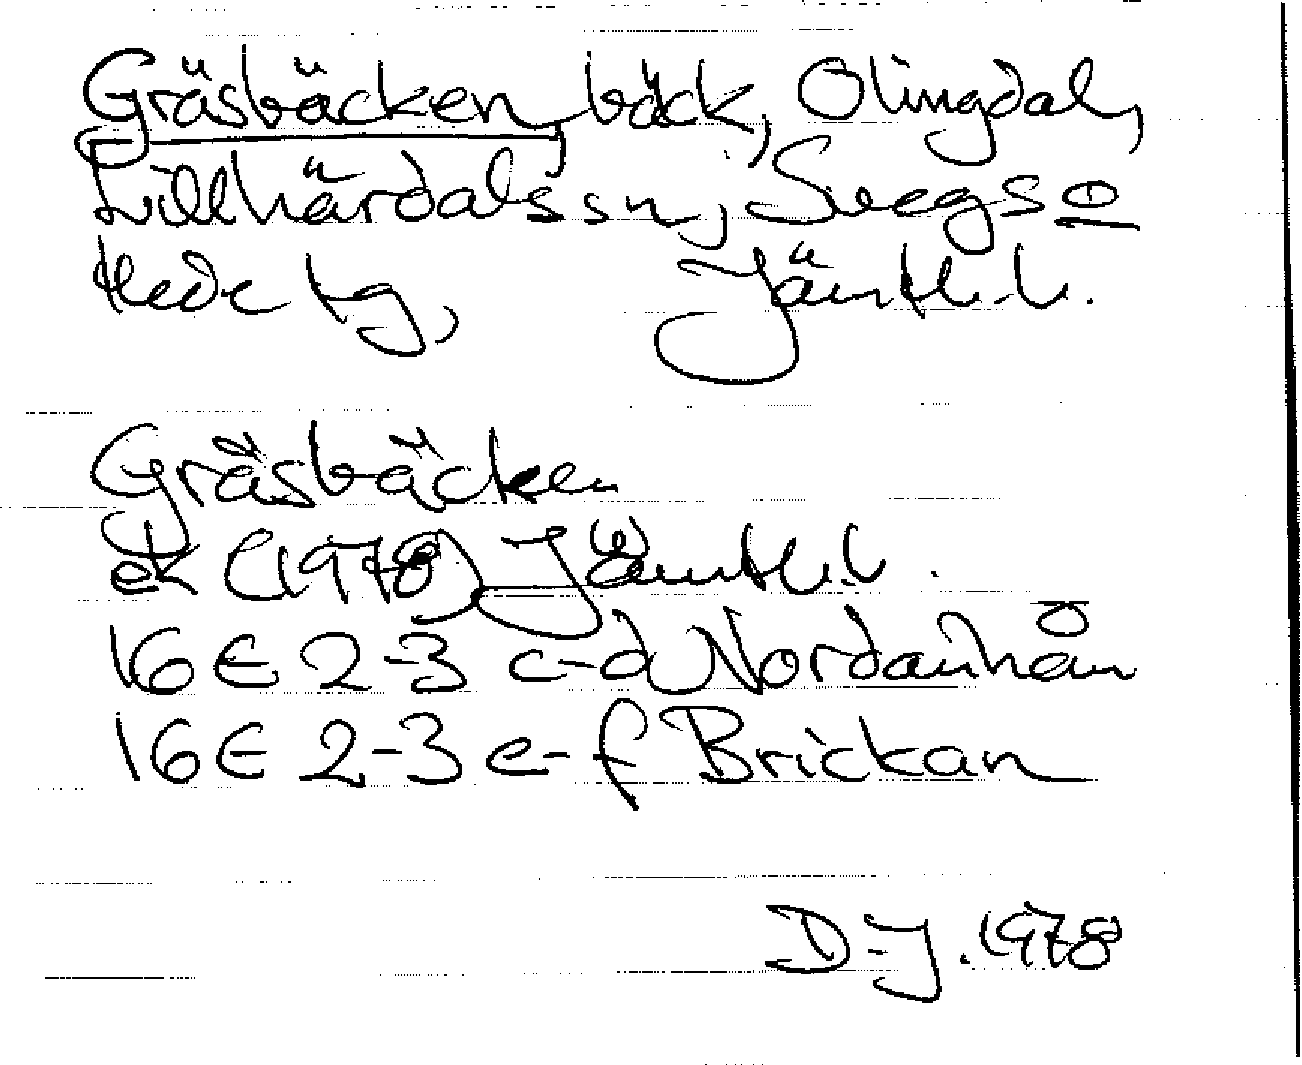 Gräsbäcken, bäck, Olingdal,
Lillhärdals sn, Svegs o
Hede tg, Jämtl. l.
Gräsbäcken
ek (1978) Jämtl. l.
16 E 2-3 c-d Nordanhån
16 E 2-3 e-f Brickan
D-J. 1978